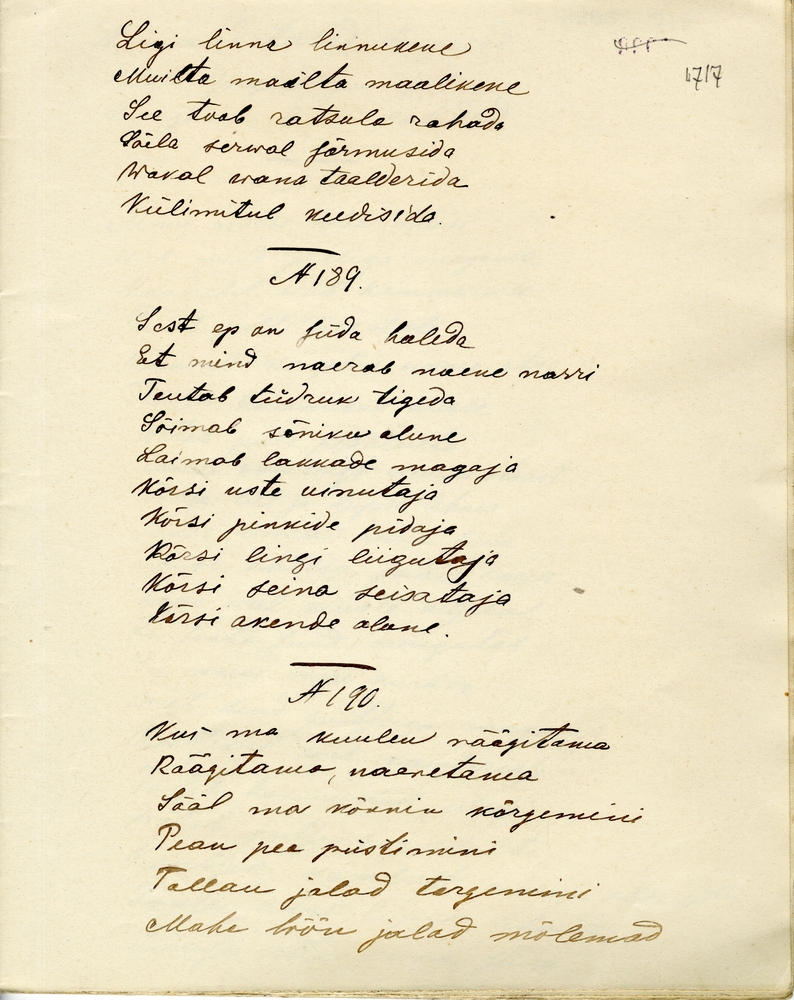 1717
Ligi linna linnukene
Muilta mailta maalikene
See toob ratsula rahada
Säela serwal sörmusida
Wakal wana taalderida
Külimitul keedisida.
N 189.
Sest ep on süda haleda
Et mind naerab naene narri
Teutab tüdruk tigeda
Sõimab sõniku alune
Laimab lakkade magaja
Kõrsi uste uinutaja
Kõrsi pinkide pidaja
Kõrsi lingi liigutaja
Kõrsi seina seisataja
Kõrsi akende alune.
N 190.
Kus ma kuulen räägitama
Räägitama, naeretama
Sääl ma kõnnin kõrgemini
Pean pea püstimini
Tallan jalad targemini
Maha löön jalad mõlemad